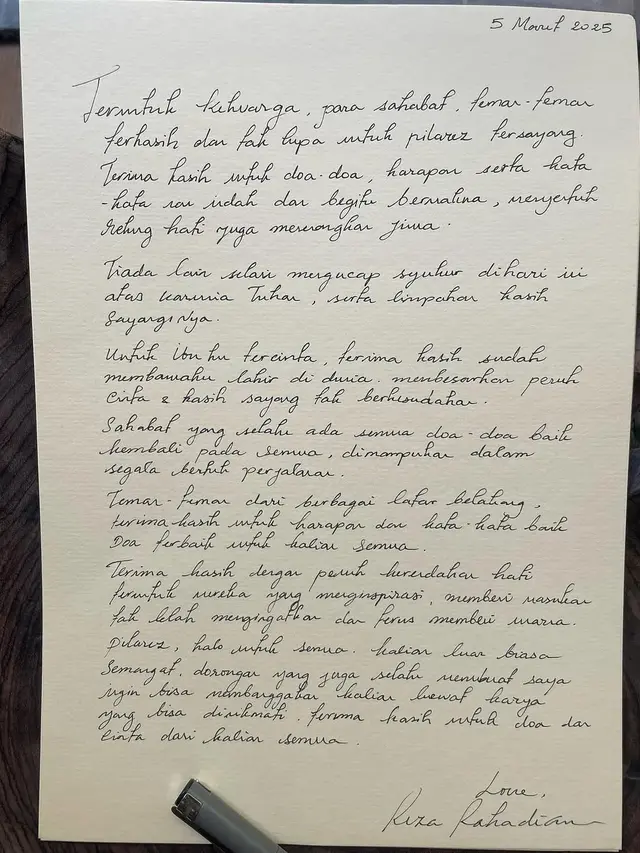 5 Maret 2025
Teruntuk keluarga, para sahabat, teman-teman
terkasih dan tak lupa untuk pilarez tersayang.
Terima kasih untuk doa-doa, harapan serta kata
-kata nan indah dan begitu bermakna, menyentuh
relung hati juga menenangkan jiwa.
Tiada lain selain mengucap syukur dihari ini
atas karunia Tuhan, serta limpahan kasih
SayangNya.
Untuk Ibu ku tercinta, terima kasih sudah
membawaku lahir di dunia. membesarkan penuh
cinta & kasih sayang tak berkesudahan.
Sahabat yang selalu ada semua doa-doa baik
kembali pada semua, dimampukan dalam
segala bentuk perjalanan.
Teman-teman dari berbagai latar belakang,
terima kasih untuk harapan dan kata-kata baik
Doa terbaik untuk kalian semua.
Terima kasih dengan penuh kerendahan hati
teruntuk mereka yang menginspirasi, memberi masukan
tak lelah mengingatkan dan terus memberi warna.
Pilarez, halo untuk semua. kalian luar biasa
Semangat, dorongan yang juga selalu membuat saya
ingin bisa membanggakan kalian lewat karya
yang bisa dinikmati. terima kasih untuk doa dan
cinta dari kalian semua.
Love,
Reza Rahadian